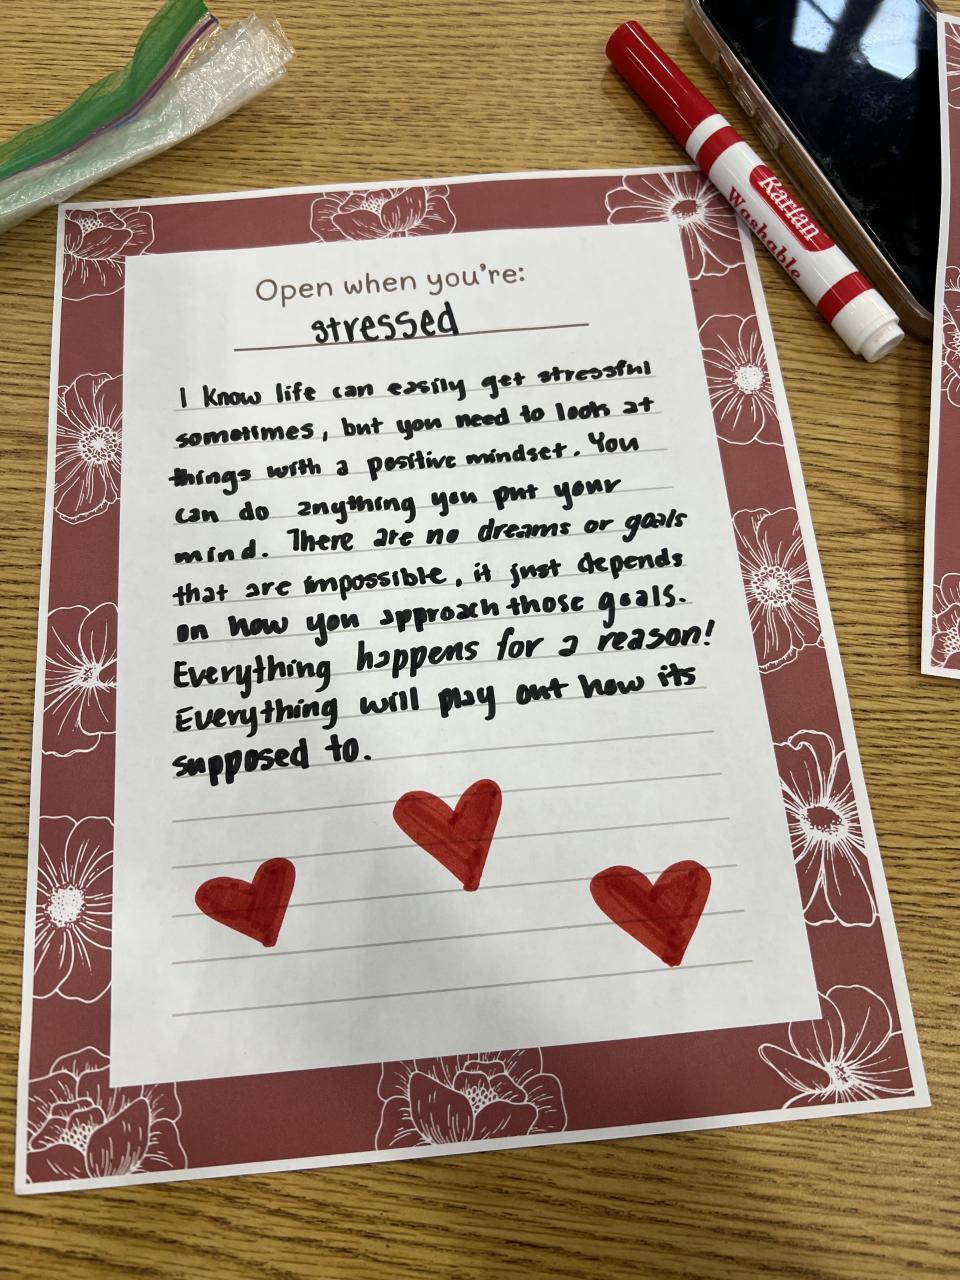 Open when you're:
stressed
I know life can easily get stressful
sometimes, but you need to look at
things with a positive mindset. You
can do anything you put your
mind. There are no dreams or goals
that are impossible, it just depends
on how you approach those goals.
Everything happens for a reason!
Everything will play out how its
supposed to.
Karlan
Washable